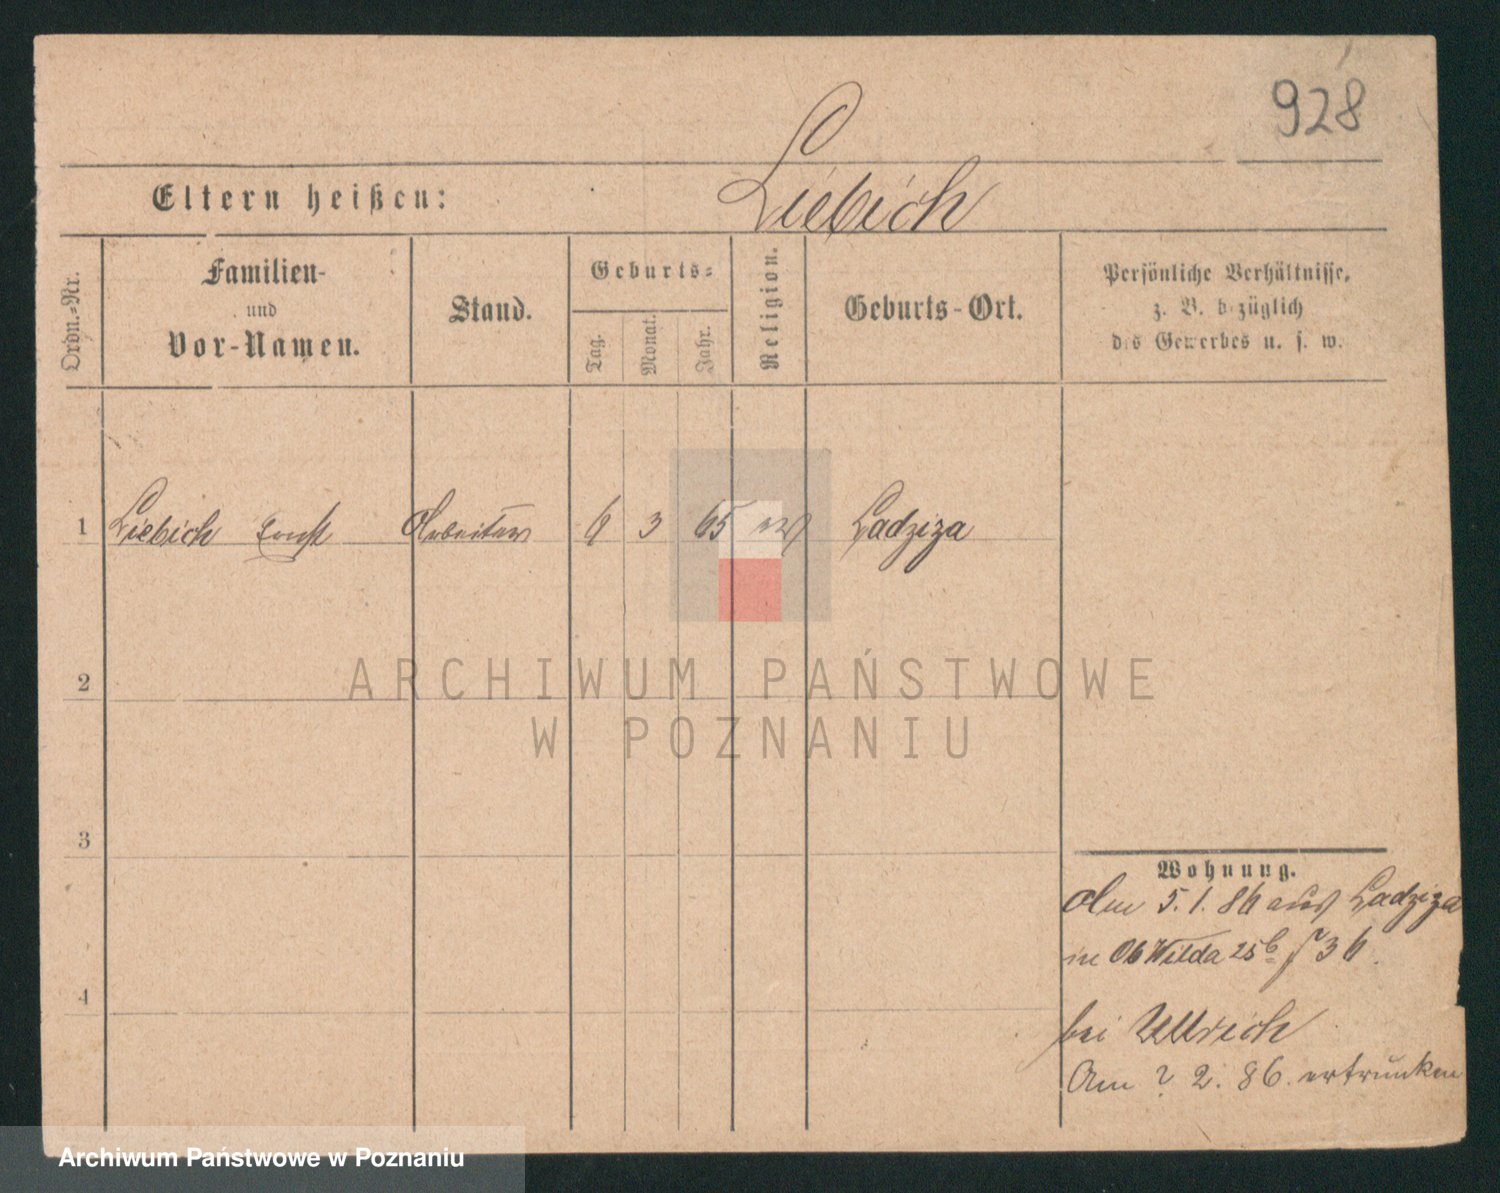 928
Liebich
Eltern heißen:
Ordn.-Nr.
Familien-
und
Vor-Namen.
Stand.
Geburts-
Tag.
Monat.
Jahr.
Religion.
Geburts-Ort.
Persönliche Verhältnisse,
z. B. bezüglich
des Gewerbes u. s. w.
1 Liebich Ernst Arbeiter 6 3 65 ev Ladziza
2
3
4
ARCHIWUM PAŃSTWOWE
W POZNANIU
Wohnung.
Am 5.1.86 aus Ladziza
in Ob Wilda 25b J 36.
bei Ullrich
Am ? 2. 86. ertrunken
Archiwum Państwowe w Poznaniu